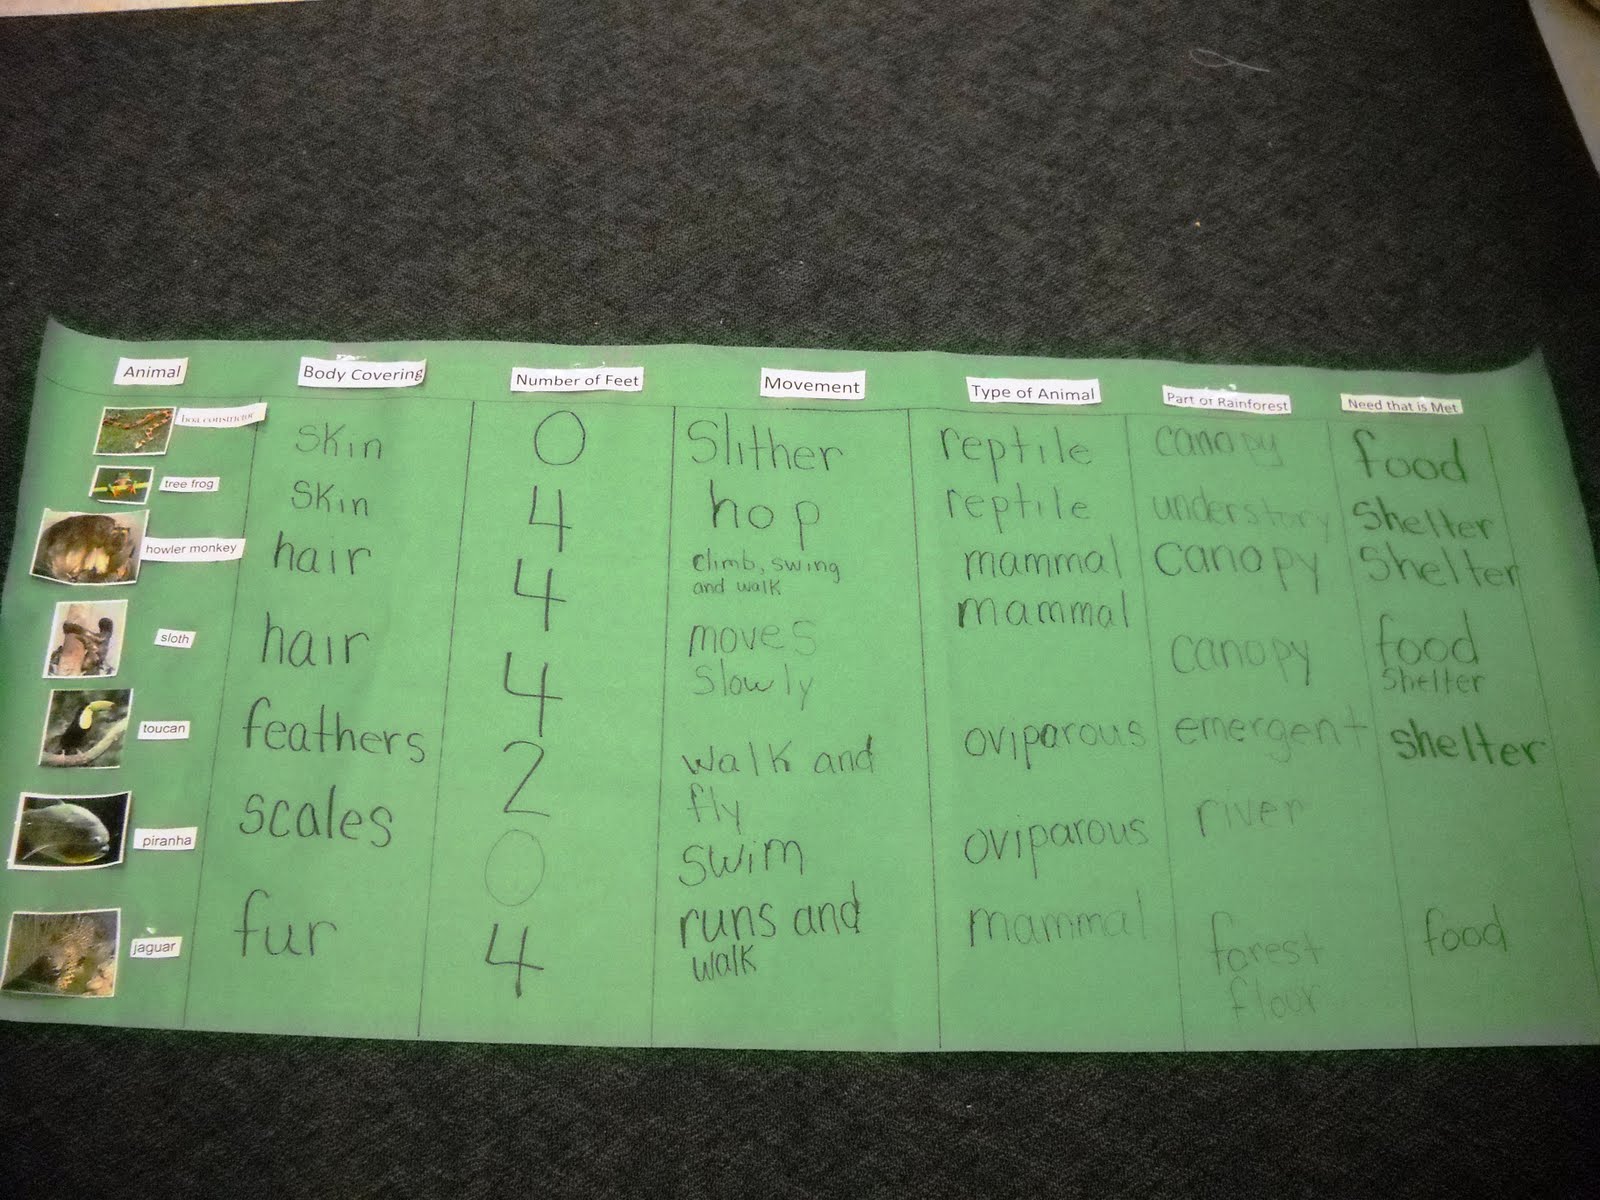 Animal Body Covering Number of Feet Movement Type of Animal Part of Rainforest Need that is Met
boa constrictor skin 0 Slither reptile canopy food
tree frog skin 4 hop reptile understory Shelter
howler monkey hair 4 climb, swing mammal canopy Shelter
and walk
sloth hair 4 moves mammal canopy food
Slowly Shelter
toucan feathers 2 walk and oviparous emergent shelter
fly
piranha scales 0 swim oviparous river
jaguar fur 4 runs and mammal forest food
walk floor